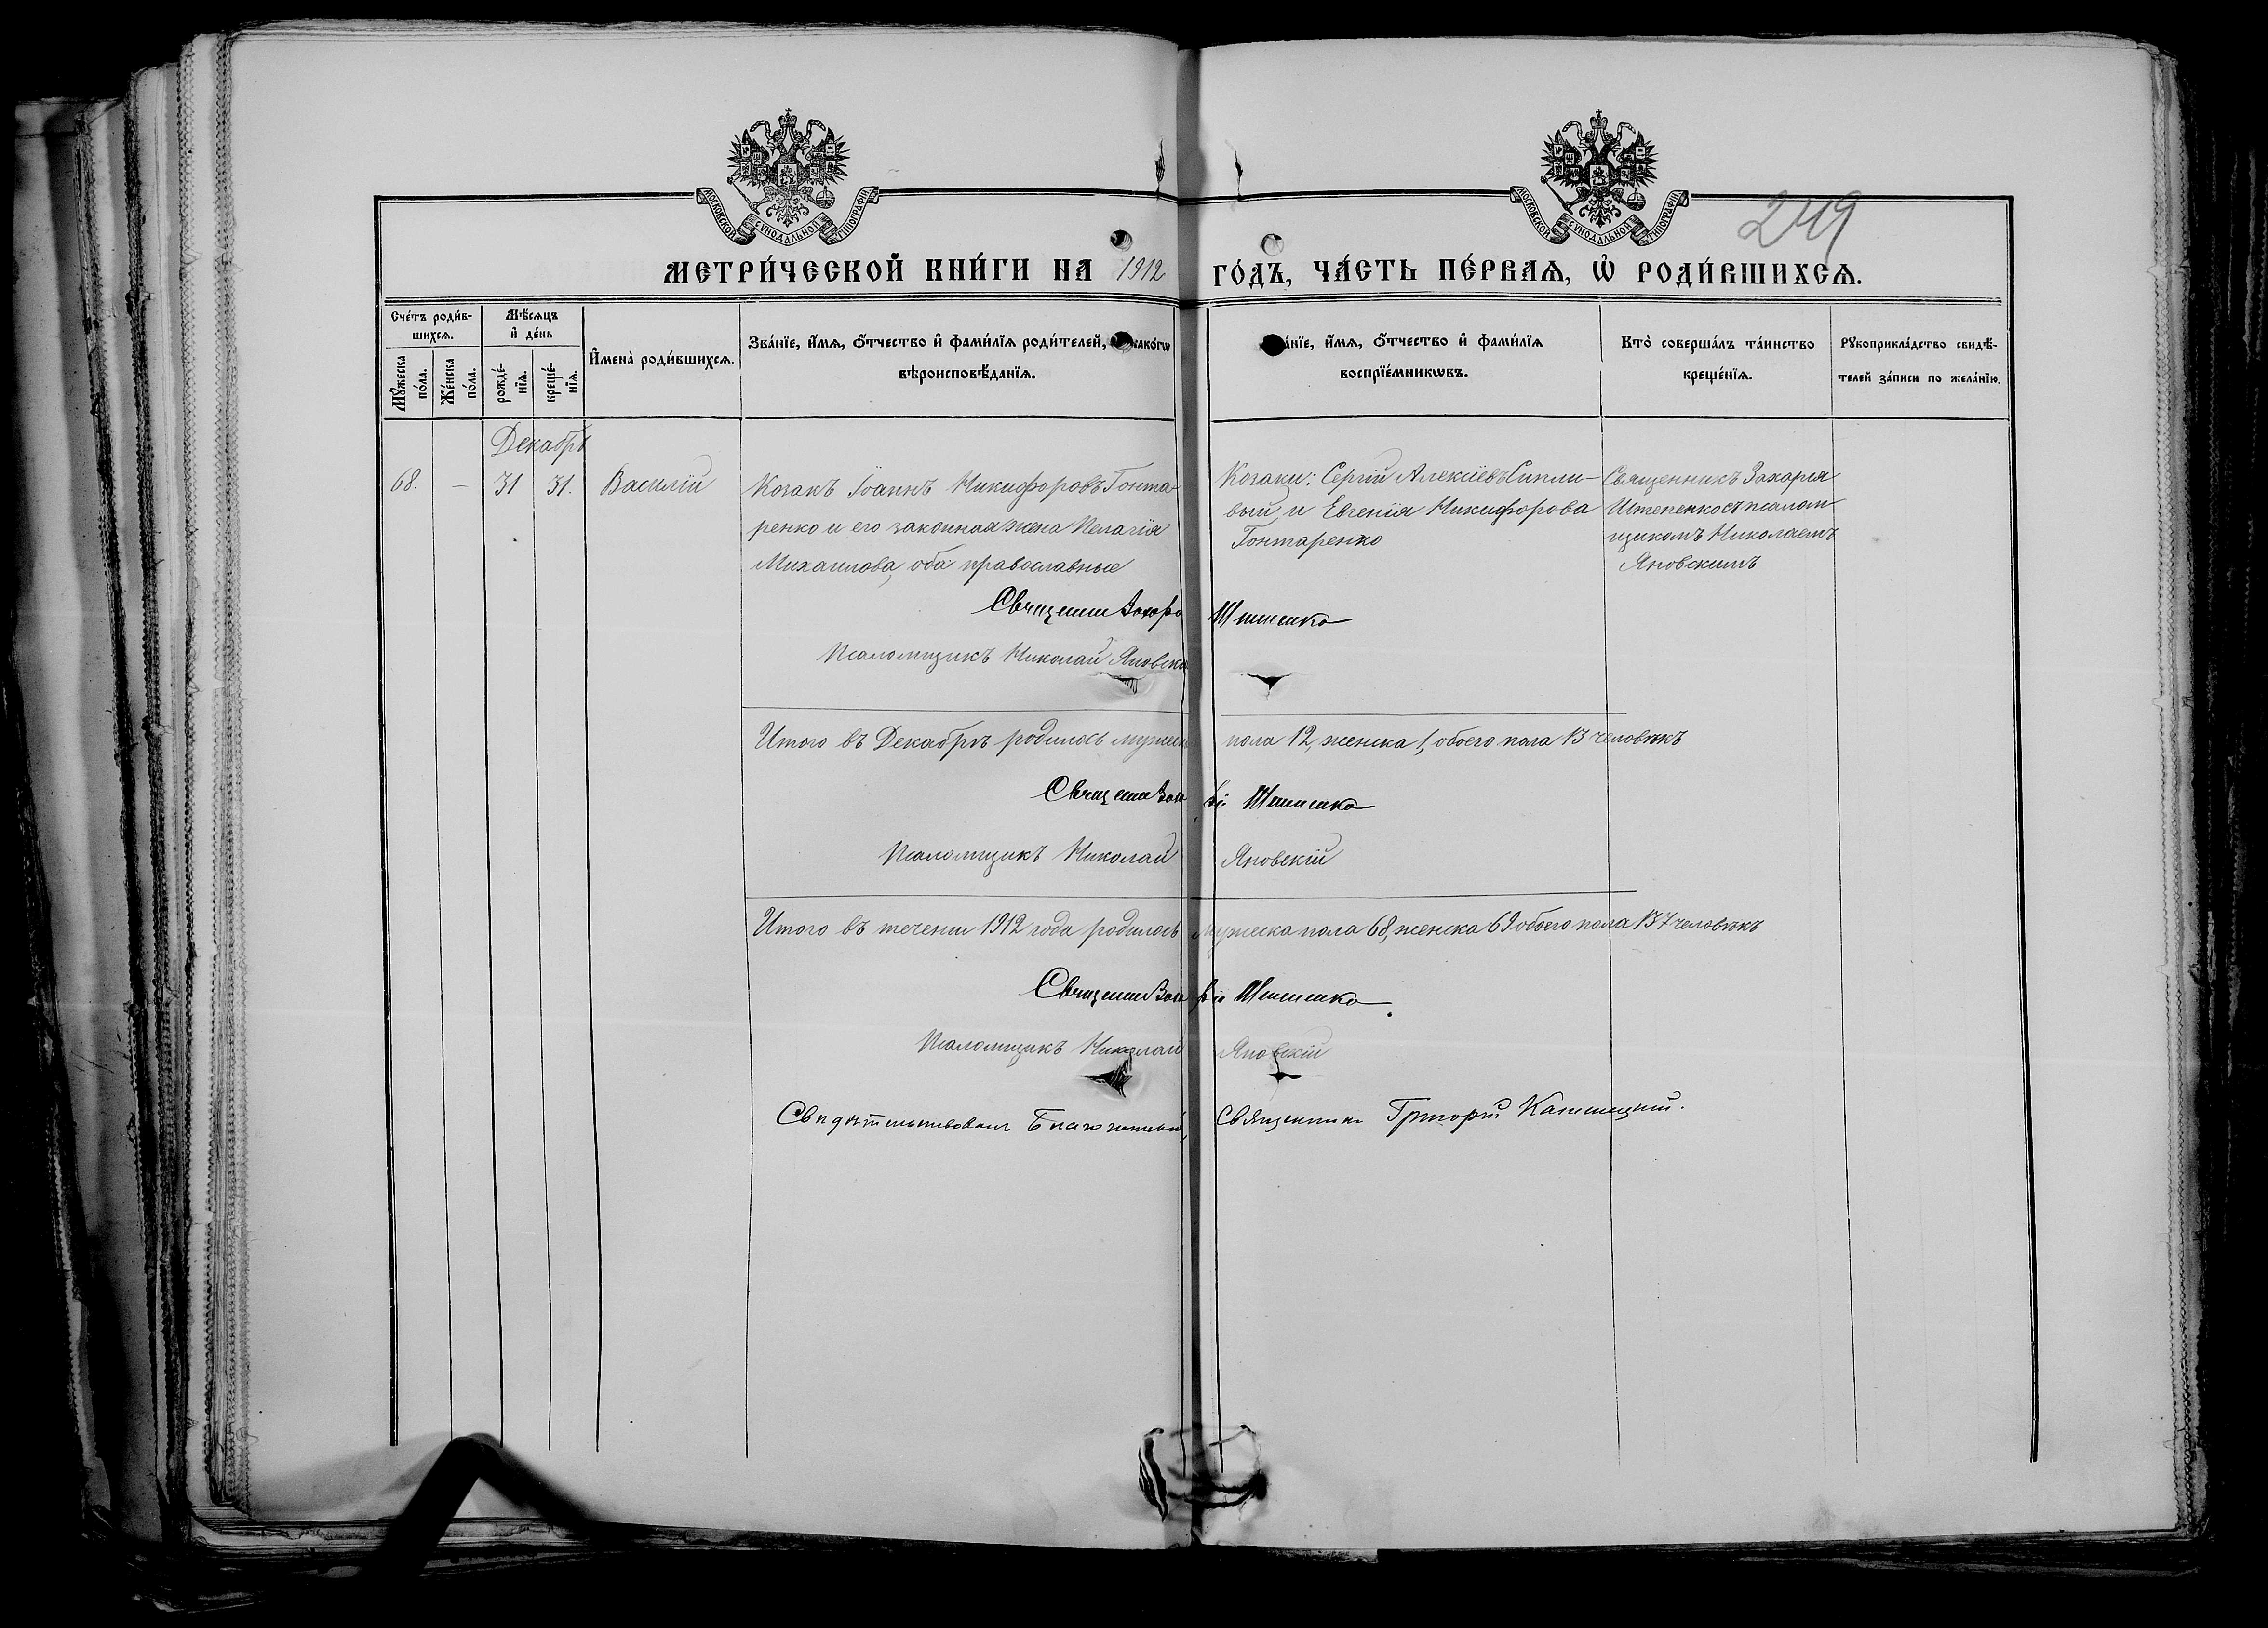 МОСКОВСКОЙ СѴНОДАЛЬНОЙ ТИПОГРАФІИ
МОСКОВСКОЙ СѴНОДАЛЬНОЙ ТИПОГРАФІИ
249
МЕТРИ́ЧЕСКОЙ КНИ́ГИ НА 1912 ГО́ДЪ, ЧА́СТЬ ПЕ́РВАѦ, Ѡ҆ РОДИ́ВШИХСѦ.
Сче́тъ роди́в-
шихсѧ.
Мꙋ́жеска
по́ла.
Же́нска
по́ла.
Мѣ́сѧцъ
и҆ де́нь
рожде́-
нїѧ.
креще́-
нїѧ.
И҆мена̀ роди́вшихсѧ.
Зва́нїе, и҆́мѧ, ѻ҆́тчество и҆ фами́лїѧ роди́телей, како́гѡ
вѣроисповѣ́данїѧ.
а́нїе, и҆́мѧ, ѻ҆́тчество и҆ фами́лїѧ
воспрїе́мникѡвъ.
Кто̀ соверша́лъ та́инство
креще́нїѧ.
Рꙋкоприкла́дство свидѣ́-
телей за́писи по жела́нїю.
Декабрь
68. — 31 31. Василій
Козакъ Іоаннъ Никифоровъ Гонта-
ренко и его законная жена Пелагія
Михаилова, оба православные
Козаки: Сергій Алексіевъ Сипли-
вый и Евгенія Никифорова
Гонтаренко
Священникъ Захарія
Штепенко съ псалом
щикомъ Николаемъ
Яновскимъ
Священн Захарі
Псаломщикъ Николай Яновскі
Итого въ Декабрѣ родилось мужеск пола 12, женска 1, обоего пола 13 человѣкъ
Священн Заха рія
Псаломщикъ Николай Яновскій
Итого въ течении 1912 года родилось мужеска пола 68, женска 69 обоего пола 137 человѣкъ
Священн Заха рія
Псаломщикъ Николай Яновскій
Свидѣтельствовалъ Благочинный, Священникъ Григорій